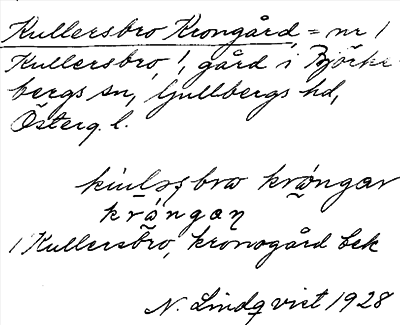 Kullersbro Krongård = nr 1
Kullersbro, 1, gård i Björke-
bergs sn, Gullbergs hd,
Österg. l.
kɯlsʂbrω krángar
krángaɳ
1 Kullersbro, kronogård bek
N. Lindqvist 1928